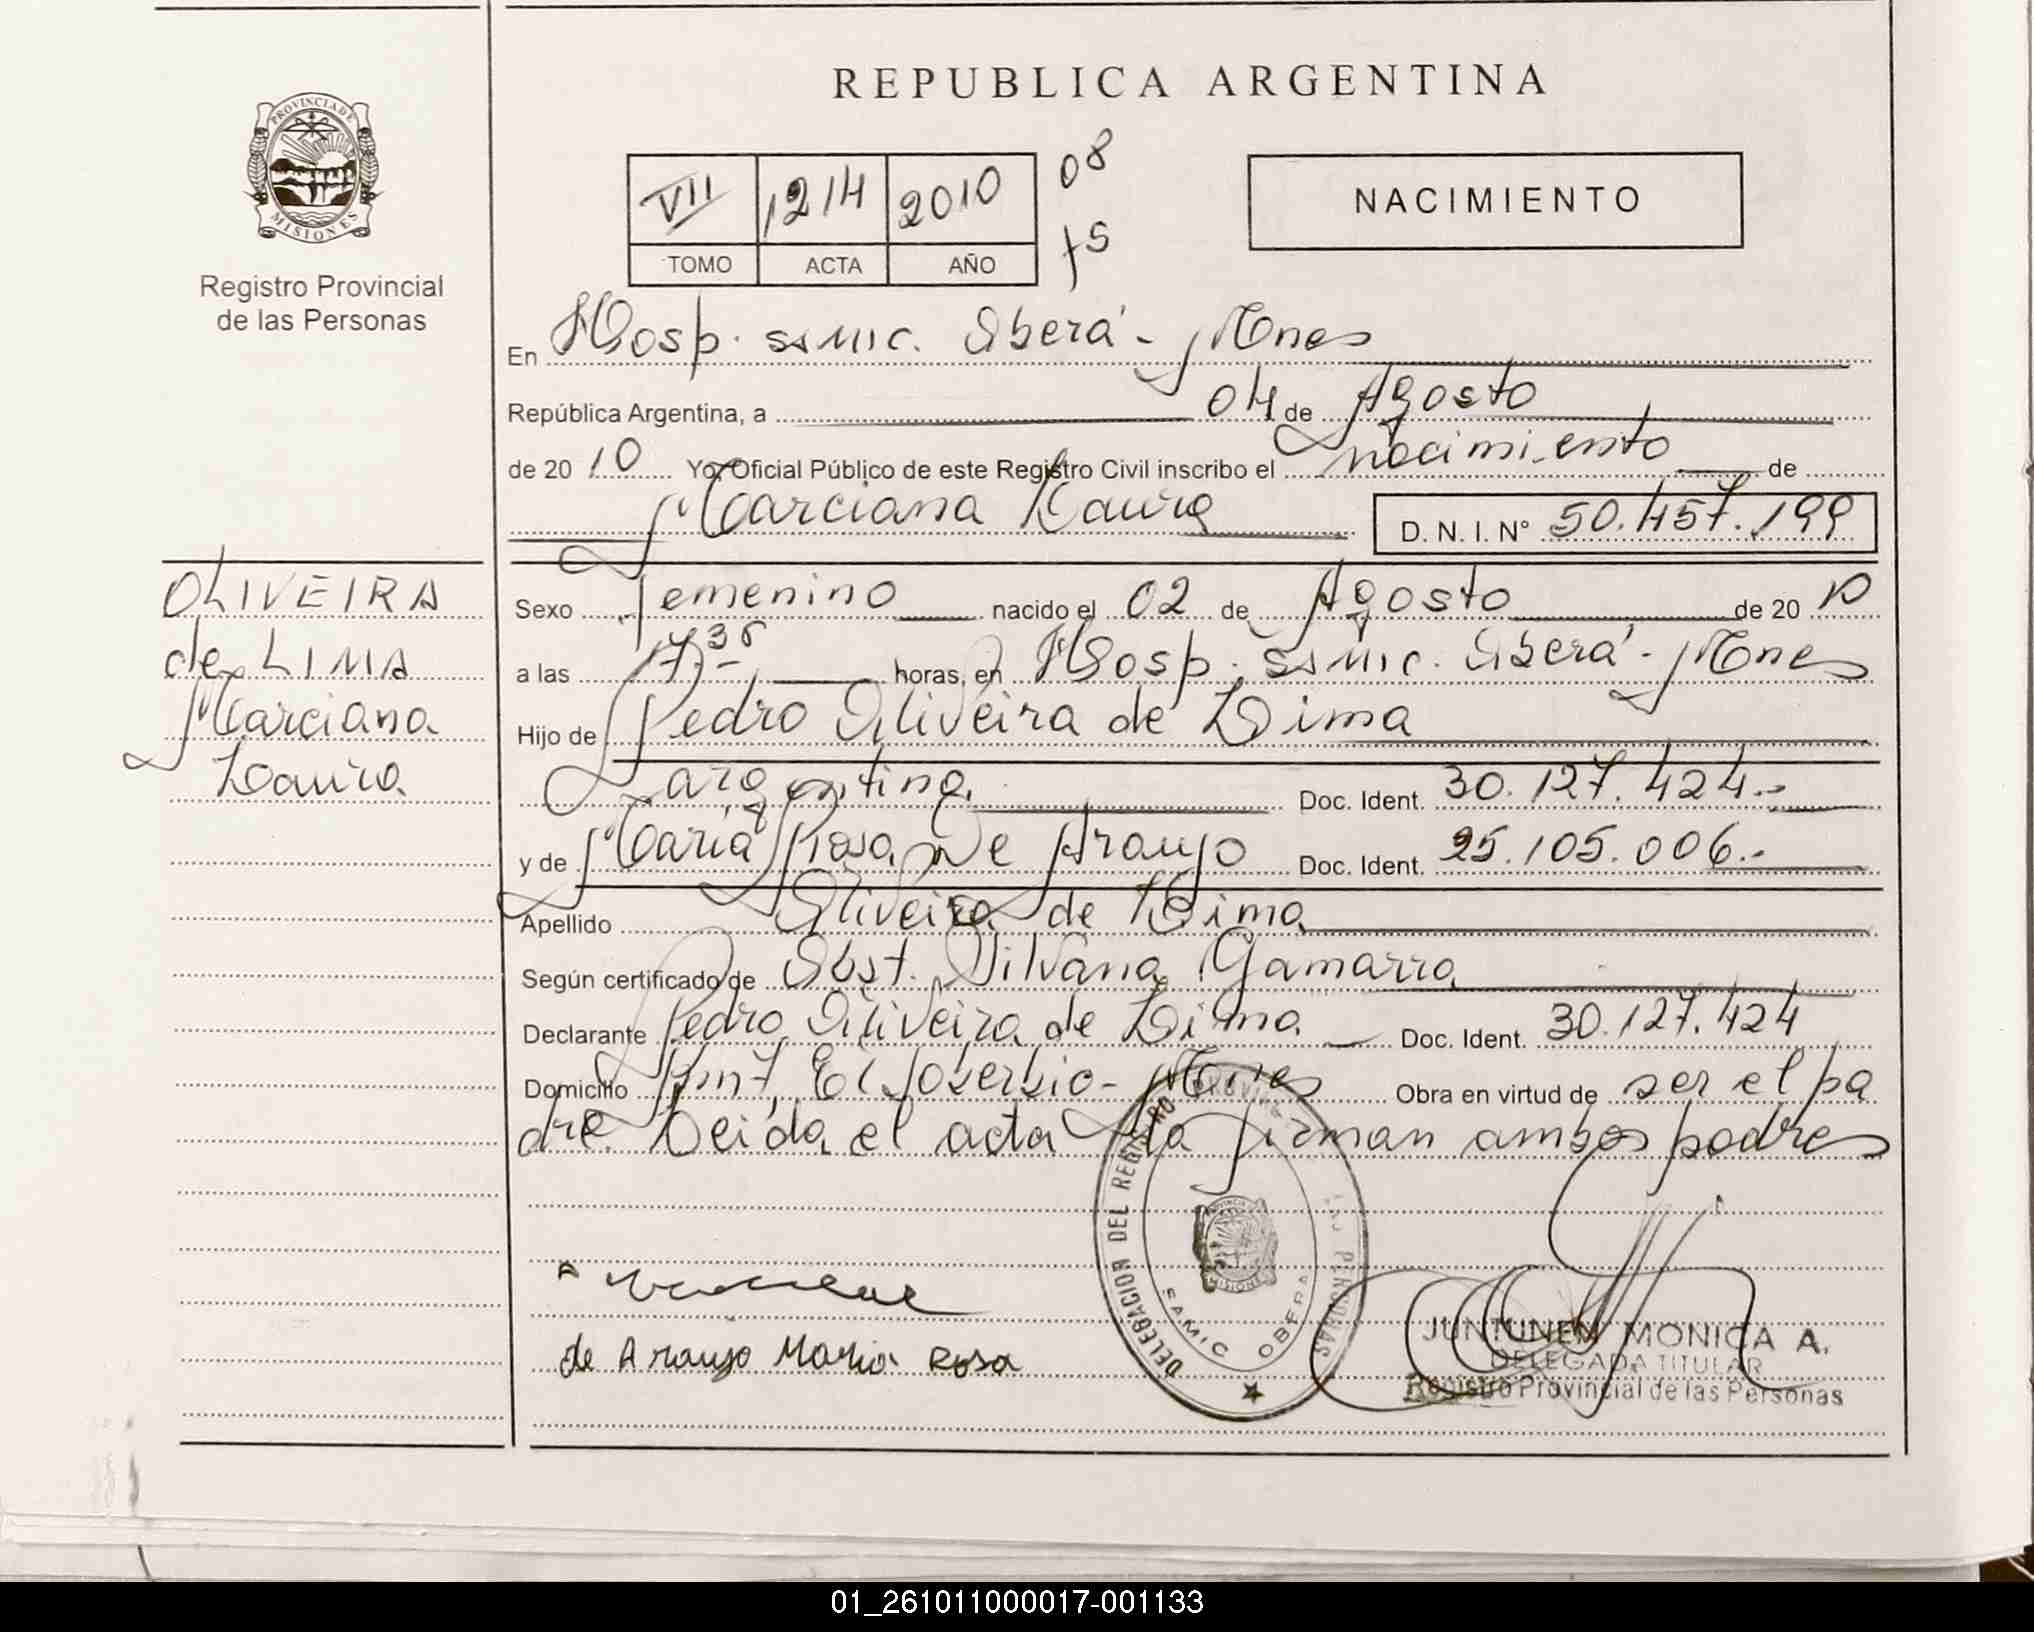 REPUBLICA ARGENTINA
PROVINCIA DE
MISIONES
Registro Provincial
de las Personas
VII 1214 2010
TOMO ACTA AÑO
08
75
NACIMIENTO
En Hosp. SAMIC. Oberá - Mnes
República Argentina, a 04 de Agosto
de 2010 Yo, Oficial Público de este Registro Civil inscribo el nacimiento de
Marciana Laura D. N. I. Nº 50.457.199
OLIVEIRA
de LIMA
Marciana
Laura
Sexo Femenino nacido el 02 de Agosto de 2010
a las 17.35 horas, en Hosp. SAMIC. Oberá - Mnes
Hijo de Pedro Oliveira de Lima
argentina Doc. Ident. 30.127.424.-
y de María Rosa De Araujo Doc. Ident. 25.105.006.-
Apellido Oliveira de Lima
Según certificado de Obst. Silvana Gamarra
Declarante Pedro Oliveira de Lima Doc. Ident. 30.127.424
Domicilio El Soberbio - Mnes Obra en virtud de ser el pa
dre. Leída el acta la firman ambos padres
DELEGACION DEL REGISTRO PROVINCIAL PERSONAS
MISIONES
SAMIC OBERA
de Araujo Maria Rosa
JUNTUNEN MONICA A.
DELEGADA TITULAR
Registro Provincial de las Personas
01_261011000017-001133